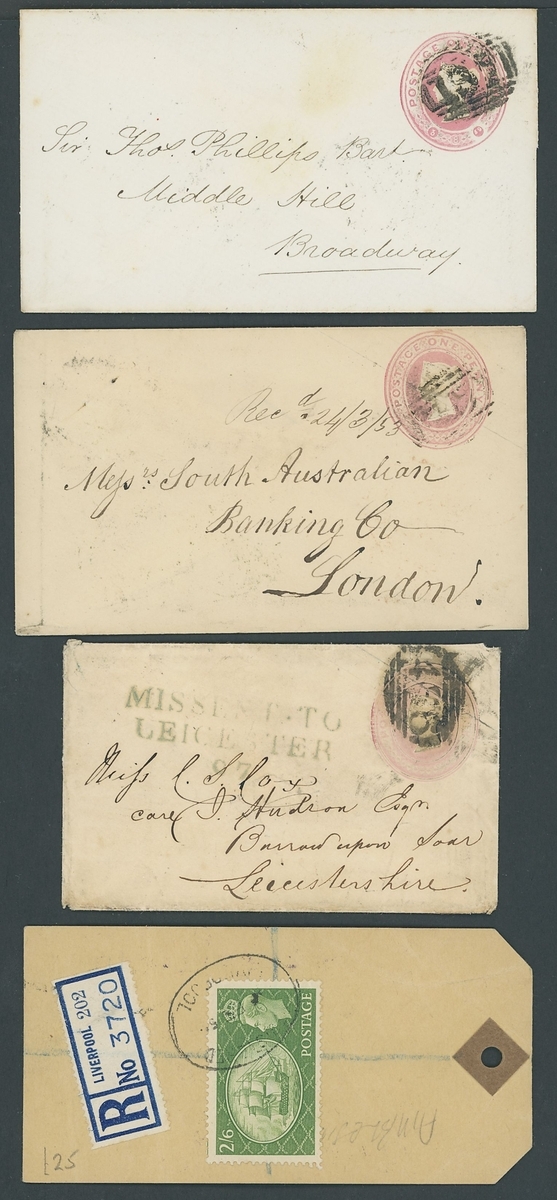 POSTAGE
Sir Thos. Phillips Bart.
Middle Hill
Broadway.
POSTAGE ONE PENNY
Recd. 24/3/53
Messrs South Australian
Banking Co
London.
MISSENT TO
LEICESTER
Miss C. S. Cox
care J. Hudson Esqr
Barrow upon Soar
Leicestershire.
LIVERPOOL 202
R No 3720
LIVERPOOL
POSTAGE
2/6
£25